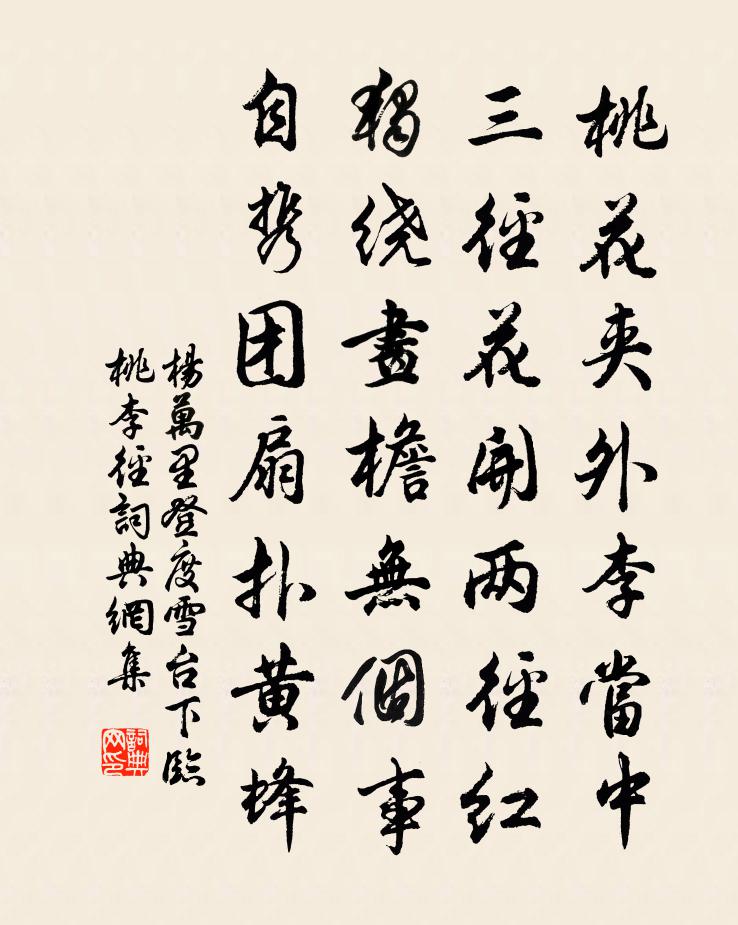 桃花夹外李當中
三徑花開两徑紅
獨绕畫檐無個事
自携团扇扑黄蜂
楊萬里登度雪台下臨
桃李徑詞典網集
詞典网印